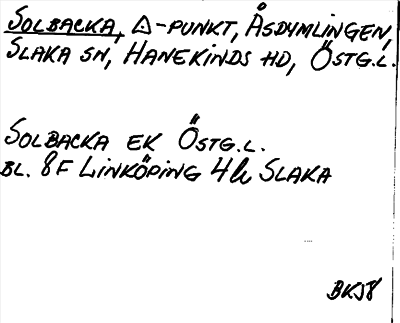 SOLBACKA, △-PUNKT, ÅSDYMLINGEN,
SLAKA SN, HANEKINDS HD, ÖSTG.L.
SOLBACKA EK ÖSTG.L.
BL. 8F LINKÖPING 4h SLAKA
BKJ8